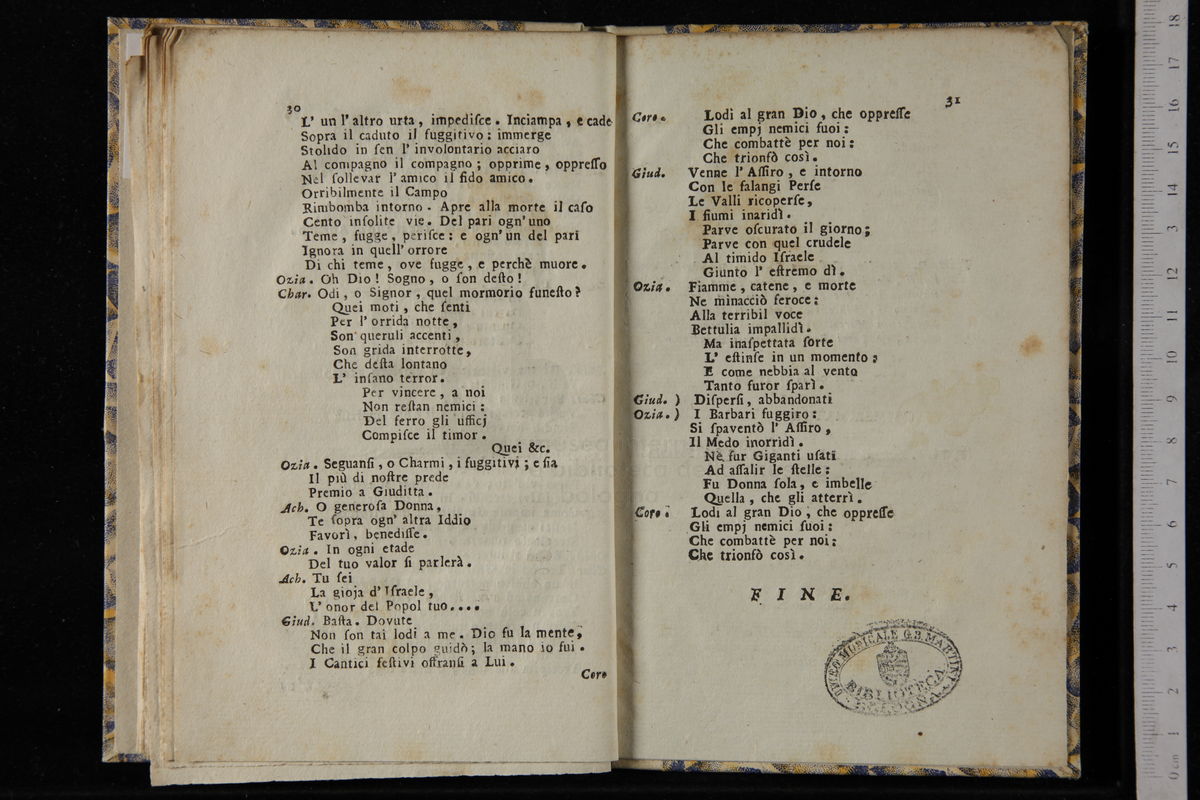 30
L' un l' altro urta, impediſce. Inciampa, e cade
Sopra il caduto il fuggitivo: immerge
Stolido in ſen l' involontario acciaro
Al compagno il compagno; opprime, oppreſſo
Nel ſollevar l' amico il fido amico.
Orribilmente il Campo
Rimbomba intorno. Apre alla morte il caſo
Cento inſolite vie. Del pari ogn' uno
Teme, fugge, periſce: e ogn' un del pari
Ignora in quell' orrore
Di chi teme, ove fugge, e perchè muore.
Ozia. Oh Dio! Sogno, o ſon deſto!
Char. Odi, o Signor, quel mormorio funeſto?
Quei moti, che ſenti
Per l' orrida notte,
Son queruli accenti,
Son grida interrotte,
Che deſta lontano
L' inſano terror.
Per vincere, a noi
Non reſtan nemici:
Del ferro gli ufficj
Compiſce il timor.
Quei &c.
Ozia. Seguanſi, o Charmi, i fuggitivi; e ſia
Il più di noſtre prede
Premio a Giuditta.
Ach. O generoſa Donna,
Te ſopra ogn' altra Iddio
Favorì, benediſſe.
Ozia. In ogni etade
Del tuo valor ſi parlerà.
Ach. Tu ſei
La gioja d' Iſraele,
L' onor del Popol tuo....
Giud. Baſta. Dovute
Non ſon tai lodi a me. Dio fu la mente,
Che il gran colpo guidò; la mano io fui.
I Cantici feſtivi offranſi a Lui.
Coro
31
Coro. Lodi al gran Dio, che oppreſſe
Gli empj nemici ſuoi:
Che combattè per noi:
Che trionfò così.
Giud. Venne l' Aſſiro, e intorno
Con le falangi Perſe
Le Valli ricoperſe,
I fiumi inaridì.
Parve oſcurato il giorno;
Parve con quel crudele
Al timido Iſraele
Giunto l' eſtremo dì.
Ozia. Fiamme, catene, e morte
Ne minacciò feroce:
Alla terribil voce
Bettulia impallidì.
Ma inaſpettata ſorte
L' eſtinſe in un momento;
E come nebbia al vento
Tanto furor ſparì.
Giud. ) Diſperſi, abbandonati
Ozia. ) I Barbari fuggiro:
Si ſpaventò l' Aſſiro,
Il Medo inorridì.
Nè fur Giganti uſati
Ad aſſalir le ſtelle:
Fu Donna ſola, e imbelle
Quella, che gli atterrì.
Coro. Lodi al gran Dio, che oppreſſe
Gli empj nemici ſuoi:
Che combattè per noi:
Che trionfò così.
FINE.
LICEO MUSICALE G.B. MARTINI
BIBLIOTECA
BOLOGNA
0 cm 1 2 3 4 5 6 7 8 9 10 11 12 3 14 15 16 17 18